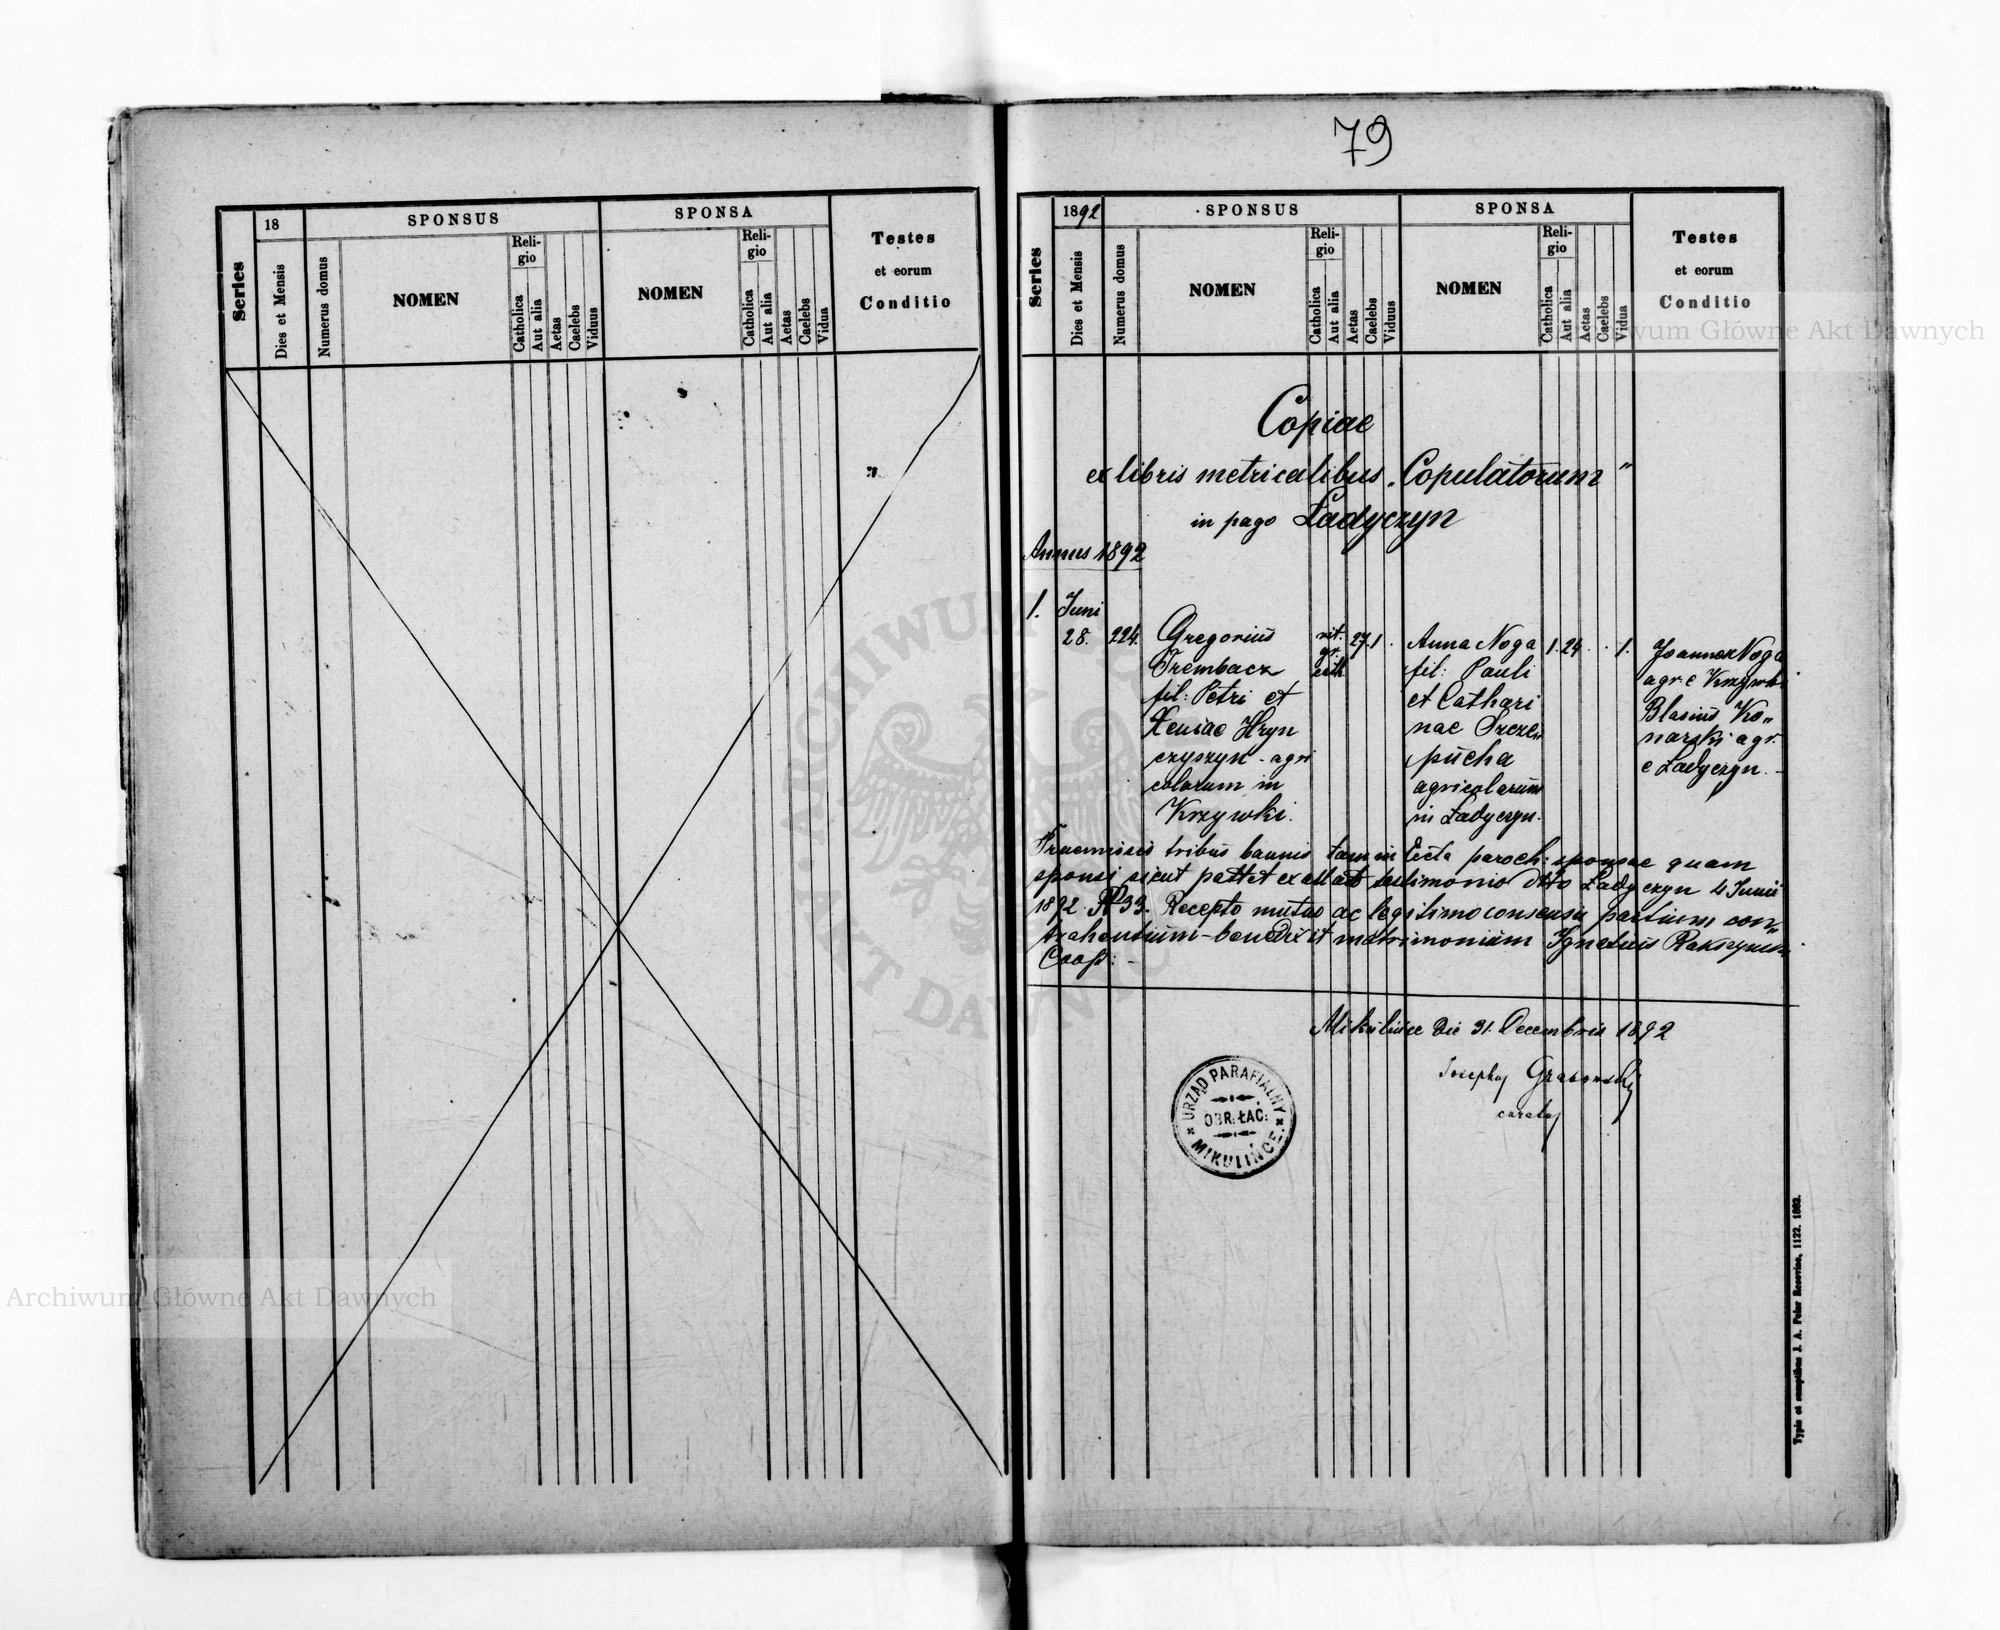 79
Series
18
Dies et Mensis
Numerus domus
SPONSUS
NOMEN
Religio
Catholica
Aut alia
Aetas
Caelebs
Viduus
SPONSA
NOMEN
Religio
Catholica
Aut alia
Aetas
Caelebs
Vidua
Testes
et eorum
Conditio
Series
1892
Dies et Mensis
Numerus domus
SPONSUS
NOMEN
Religio
Catholica
Aut alia
Aetas
Caelebs
Viduus
SPONSA
NOMEN
Religio
Catholica
Aut alia
Aetas
Caelebs
Vidua
Testes
et eorum
Conditio
Copiae
ex libris metricalibus „Copulatorum"
in pago Ładyczyn
Annus 1892
1. Juni
28. 224.
Gregorius
Trembacz
fil: Petri et
Xeniae Hryn
czyszyn - agri
colarum in
Krzywki.
rit.
gr.
cath.
27. 1.
Anna Noga
fil: Pauli
et Cathari
nae Szcze„
pucha
agricolarum
in Ładyczyn.
1. 24 . . 1.
Joannes Noga
agr. e Krzywki
Blasius Ko„
narski agr.
e Ładyczyn. -
Praemissis tribus bannis tam in Eccla paroch: sponsae quam
sponsi sicut pattet ex allato testimonio dtto Ładyczyn 4 Junii
1892 № 33. Recepto mutuo ac legitimo consensu partium con„
trahentium - benedixit matrimonium Ignatius
Coop: -
Mikulińce die 31. Decembris 1892
Josephus Grabowski
curatus
URZĄD PARAFIALNY
OBR. ŁAĆ.
MIKULIŃCE.
Typis et sumptibus J. A. Pelar Resoviae, 1122. 1883.
Archiwum Główne Akt Dawnych
Archiwum Główne Akt Dawnych
ARCHIWUM GŁÓWNE AKT DAWNYCH